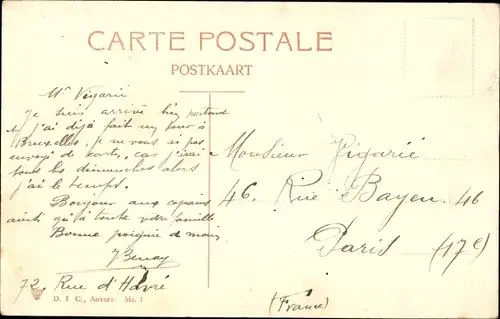 CARTE POSTALE
POSTKAART
Mr Vigarié
Je suis arrivé bien portant
et j'ai déjà fait un tour à
Bruxelles, je ne vous ai pas
envoyé de carte, car j'irai
tous les dimanches alors
j'ai le temps.
Bonjour aux copains
ainsi qu'à toute votre famille
Bonne poignée de main
72, Rue d'Havré
D. T C., Anvers. Ms. 1
Monsieur Vigarié
46. Rue Bayen. 46
Paris (17e)
(France)